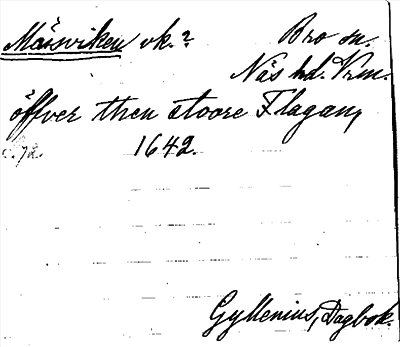 Mårsviken vk.? Bro sn.
Näs hd. Vrm.
öffver then stoore Flagan,
1642.
Gyllenius, Dagbok.